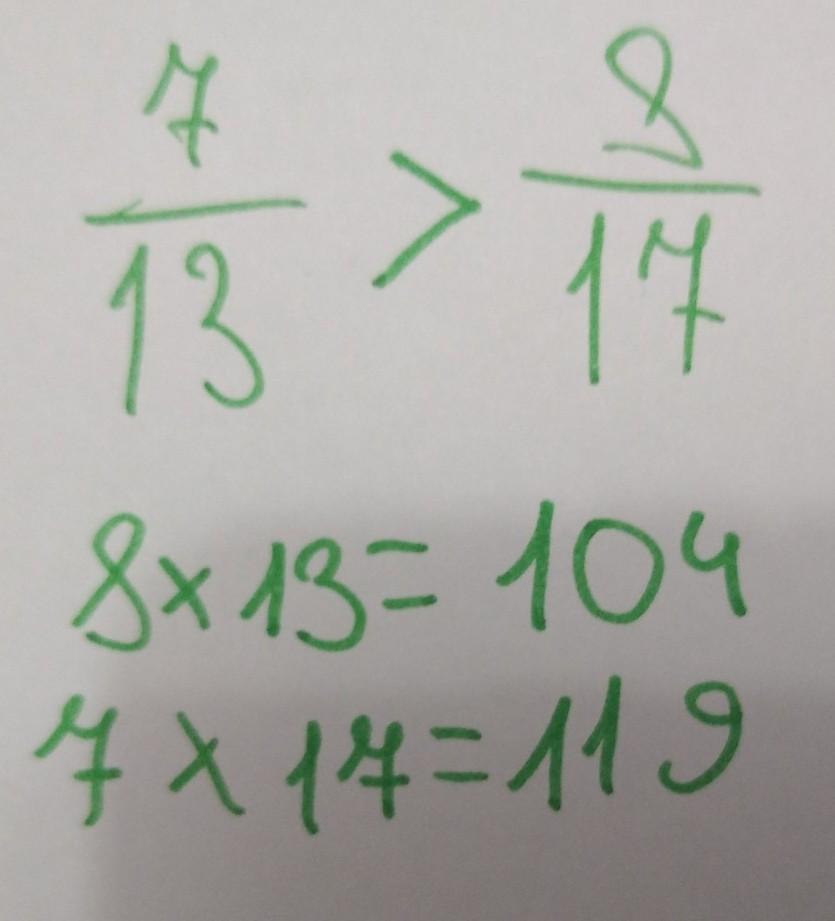 7/13 > 8/17
8 x 13 = 104
7 x 17 = 119